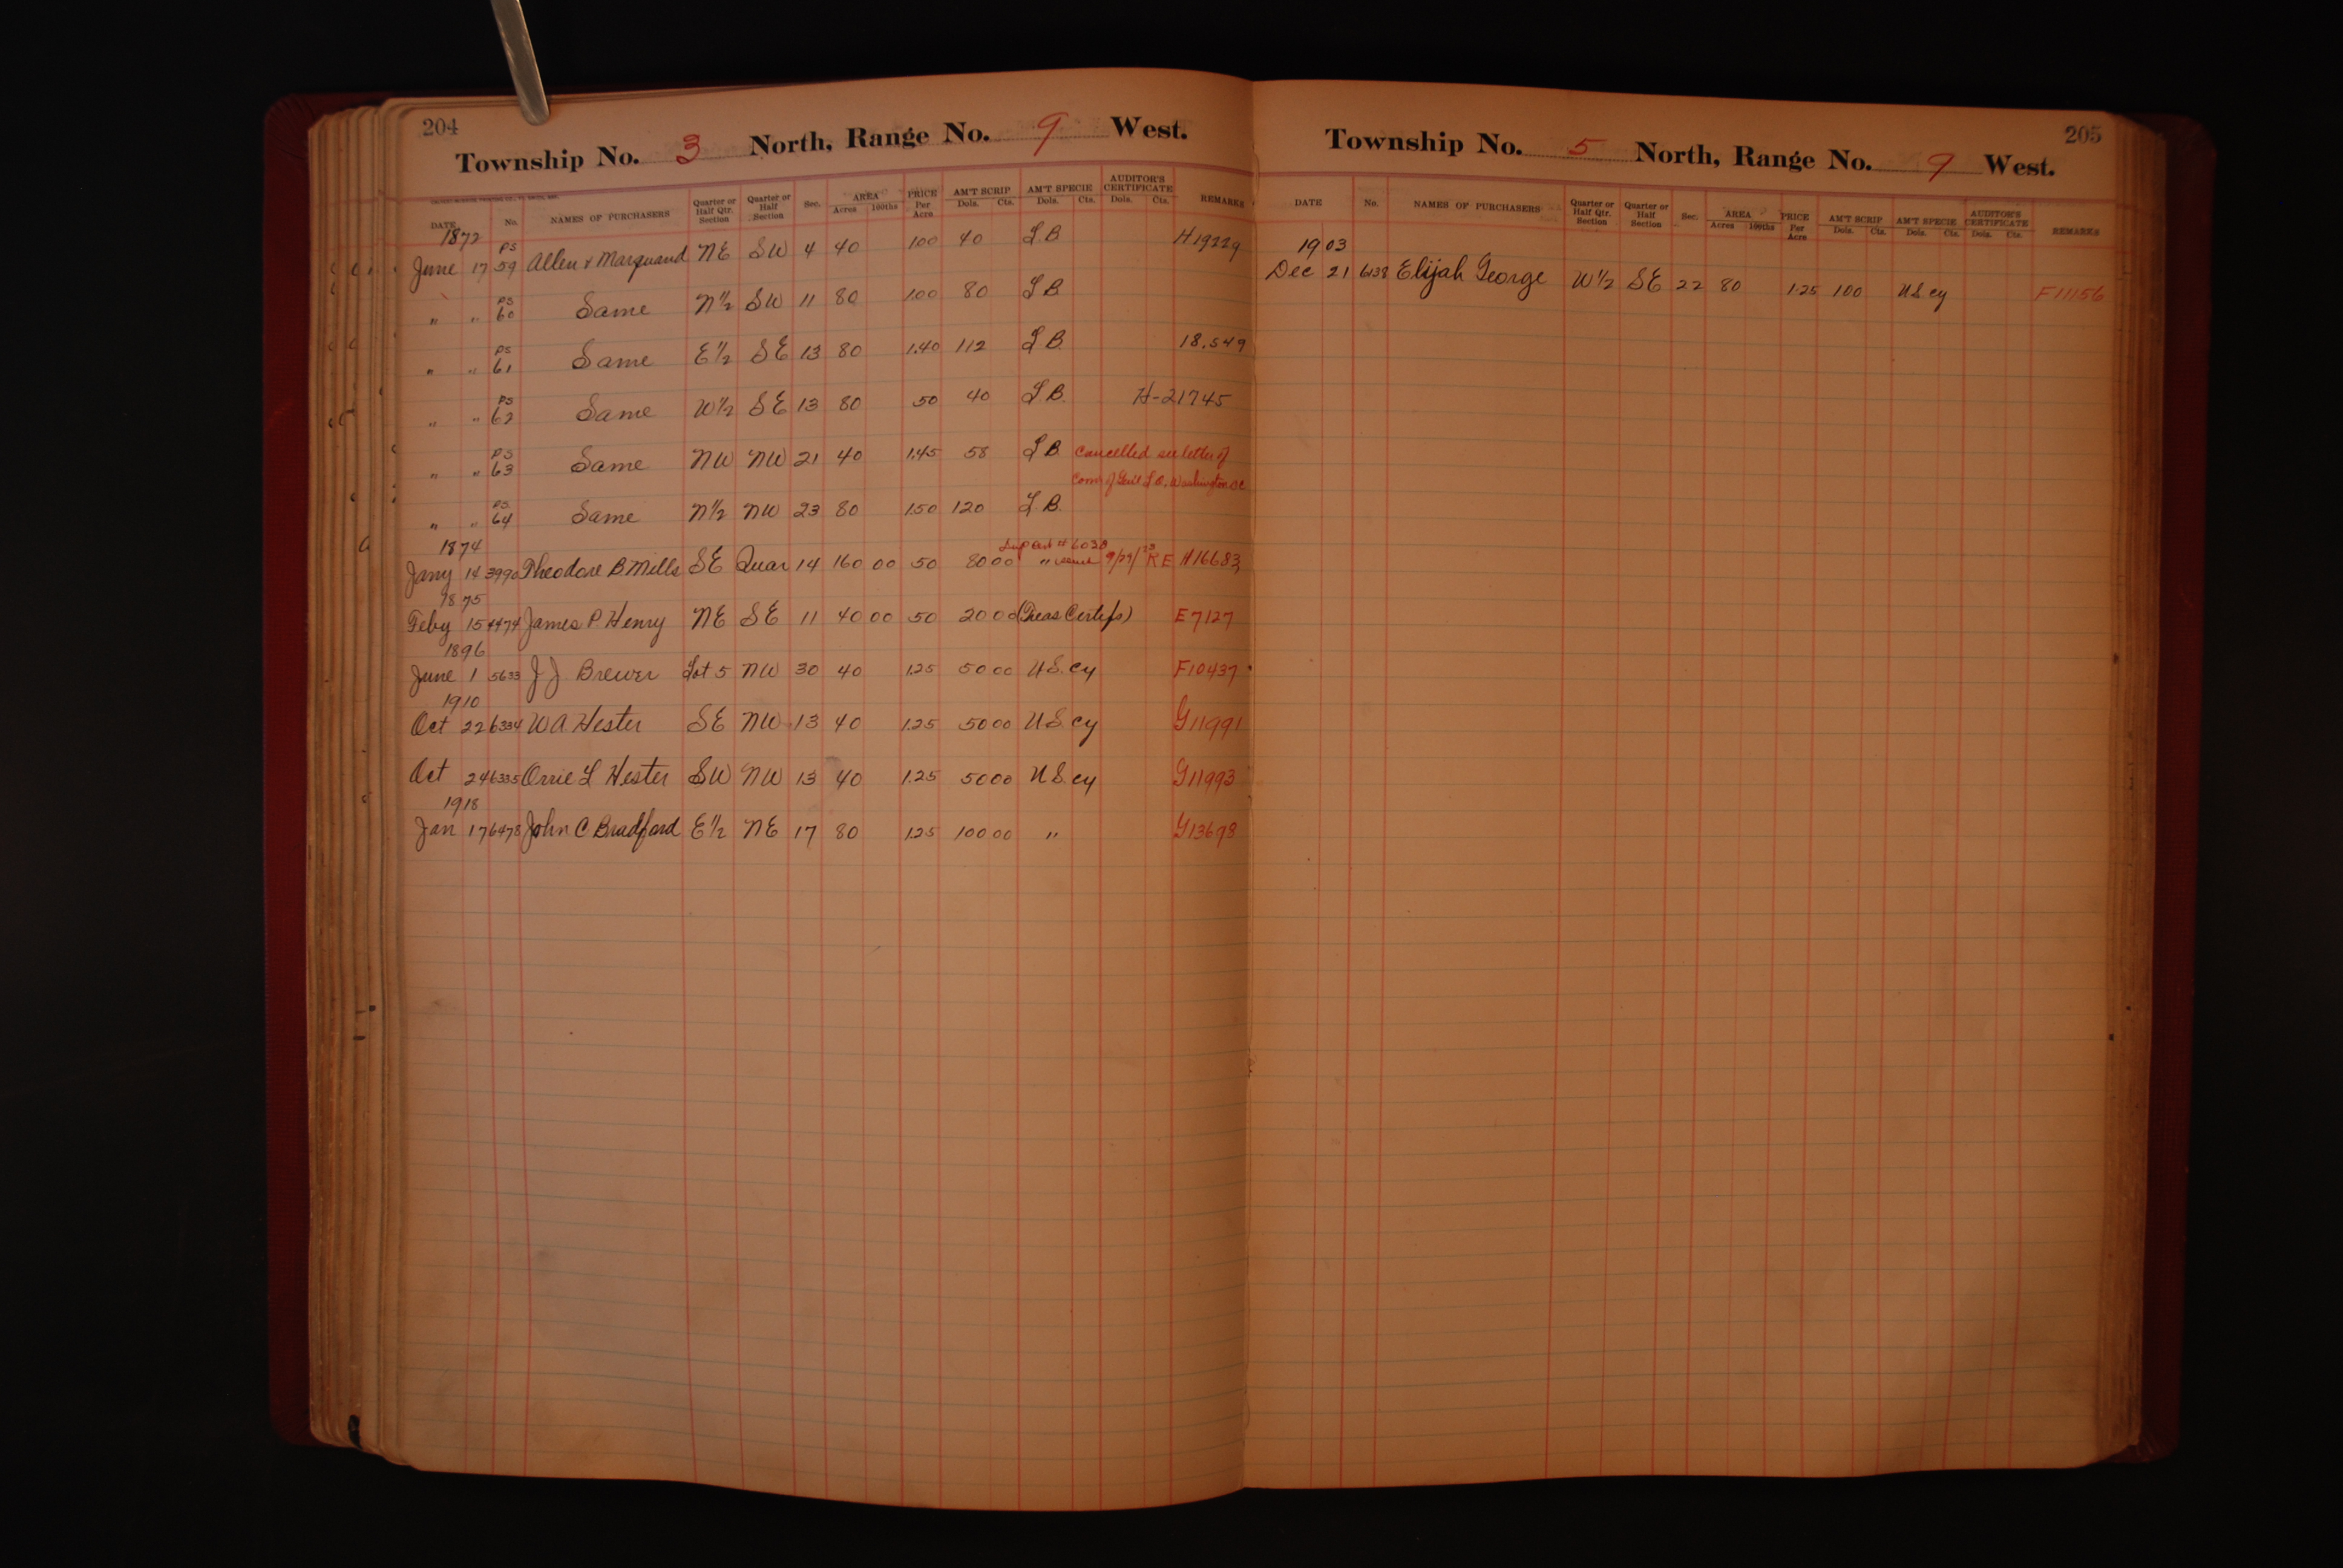 204
Township No. 3 North, Range No. 9 West.
DATE No. NAMES OF PURCHASERS Quarter or Half Qtr. Section Quarter or Half Section Sec. AREA Acres 100ths PRICE Per Acre AM'T SCRIP Dols. Cts. AM'T SPECIE Dols. Cts. AUDITOR'S CERTIFICATE Dols. Cts. REMARKS
1872
June 17 PS 59 Allen & Marquand NE SW 4 40 1.00 40 L B H19229
" " PS 60 Same N½ SW 11 80 1.00 80 L B
" " PS 61 Same E½ SE 13 80 1.40 112 L B. 18.549
" " PS 62 Same W½ SE 13 80 50 40 L B. H-21745
" " PS 63 Same NW NW 21 40 1.45 58 L B Cancelled see letter of
Com of Genl L O, Washington DC
" " PS 64 Same N½ NW 23 80 1.50 120 L B.
1874
Jany 14 3990 Theodore B. Mills SE Quar 14 160 00 50 80 00 " 9/29/23 R E H16683
1875
Feby 15 4474 James P. Henry NE SE 11 40 00 50 20 00 (Treas Certifs) E7127
1896
June 1 5633 J J Brewer Lot 5 NW 30 40 1.25 50 00 U S. cy F10437
1910
Oct 22 6334 W A. Hester SE NW 13 40 1.25 50 00 U S. cy G11991
Oct 24 6335 Orrie L Hester SW NW 13 40 1.25 50 00 U S. cy G11993
1918
Jan 17 6478 John C Bradford E½ NE 17 80 1.25 100 00 " G13678
205
Township No. 5 North, Range No. 9 West.
DATE No. NAMES OF PURCHASERS Quarter or Half Qtr. Section Quarter or Half Section Sec. AREA Acres 100ths PRICE Per Acre AM'T SCRIP Dols. Cts. AM'T SPECIE Dols. Cts. AUDITOR'S CERTIFICATE Dols. Cts. REMARKS
1903
Dec 21 6138 Elijah George W½ SE 22 80 1.25 100 U S. cy F11156